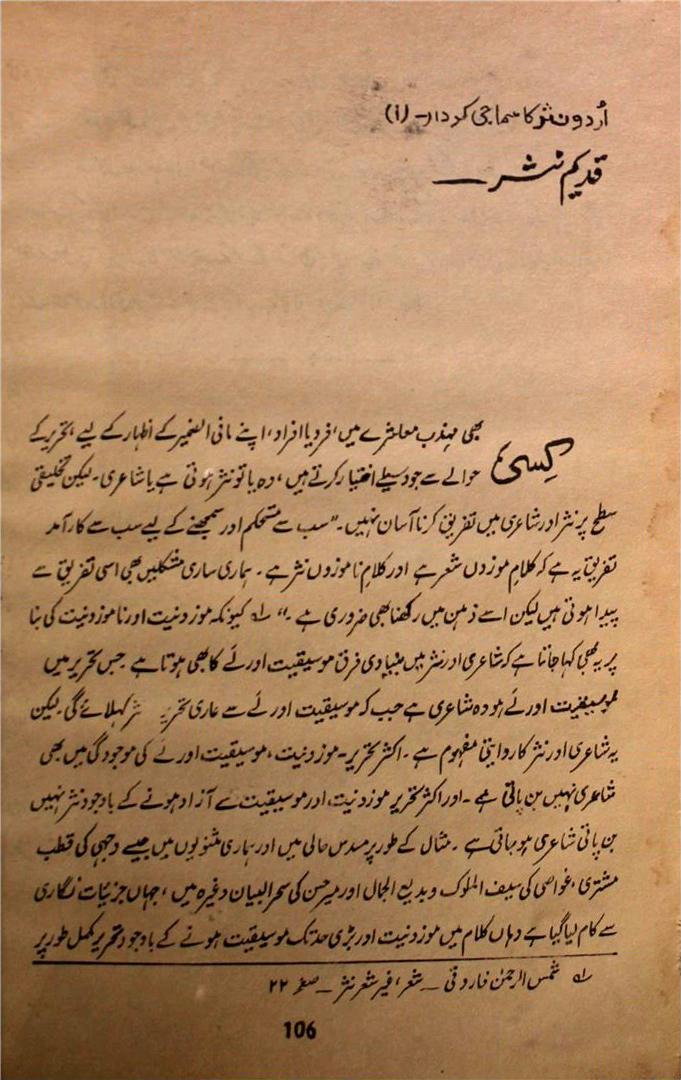 اُردو نثر کا سماجی کردار۔ (i)
قدیم نثر ـــ
کِسی بھی مہذب معاشرے میں، فرد یا افراد، اپنے مافی الضمیر کے اظہار کے لیے، تحریر کے
حوالے سے جو وسیلے اختیار کرتے ہیں، وہ یا تو نثر ہوتی ہے یا شاعری۔ لیکن تخلیقی
سطح پر نثر اور شاعری میں تفریق کرنا آسان نہیں۔ "سب سے مستحکم اور سمجھنے کے لیے سب سے کارآمد
تفریق یہ ہے کہ کلامِ موزوں شعر ہے اور کلامِ ناموزوں نثر ہے۔ ہماری ساری مشکلیں بھی اسی تفریق سے
پیدا ہوتی ہیں لیکن اسے ذہن میں رکھنا بھی ضروری ہے۔" لے کیونکہ موزونیت اور ناموزونیت کی بنا
پر یہ بھی کہا جاتا ہے کہ شاعری اور نثر میں بنیادی فرق موسیقیت اور لَے کا بھی ہوتا ہے جس تحریر میں
موسیقیت اور لَے ہو وہ شاعری ہے جب کہ موسیقیت اور لَے سے عاری تحریر نثر کہلائے گی۔ لیکن
یہ شاعری اور نثر کا روایتی مفہوم ہے۔ اکثر تحریر۔ موزونیت، موسیقیت اور لَے کی موجودگی میں بھی
شاعری نہیں بن پاتی ہے۔ اور اکثر تحریر موزونیت، اور موسیقیت سے آزاد ہونے کے باوجود نثر نہیں
بن پاتی شاعری ہو جاتی ہے۔ مثال کے طور پر مسدس حالی میں اور ہماری مثنویوں میں جیسے وجہی کی قطب
مشتری، غواصی کی سیف الملوک و بدیع الجمال اور میر حسن کی سحر البیان وغیرہ میں، جہاں جزئیات نگاری
سے کام لیا گیا ہے وہاں کلام میں موزونیت اور بڑی حد تک موسیقیت ہونے کے باوجود تحریر مکمل طور پر
لے شمس الرحمٰن فاروقی ــ شعر، غیر شعر نثر ــ صفحہ ۲۲
106